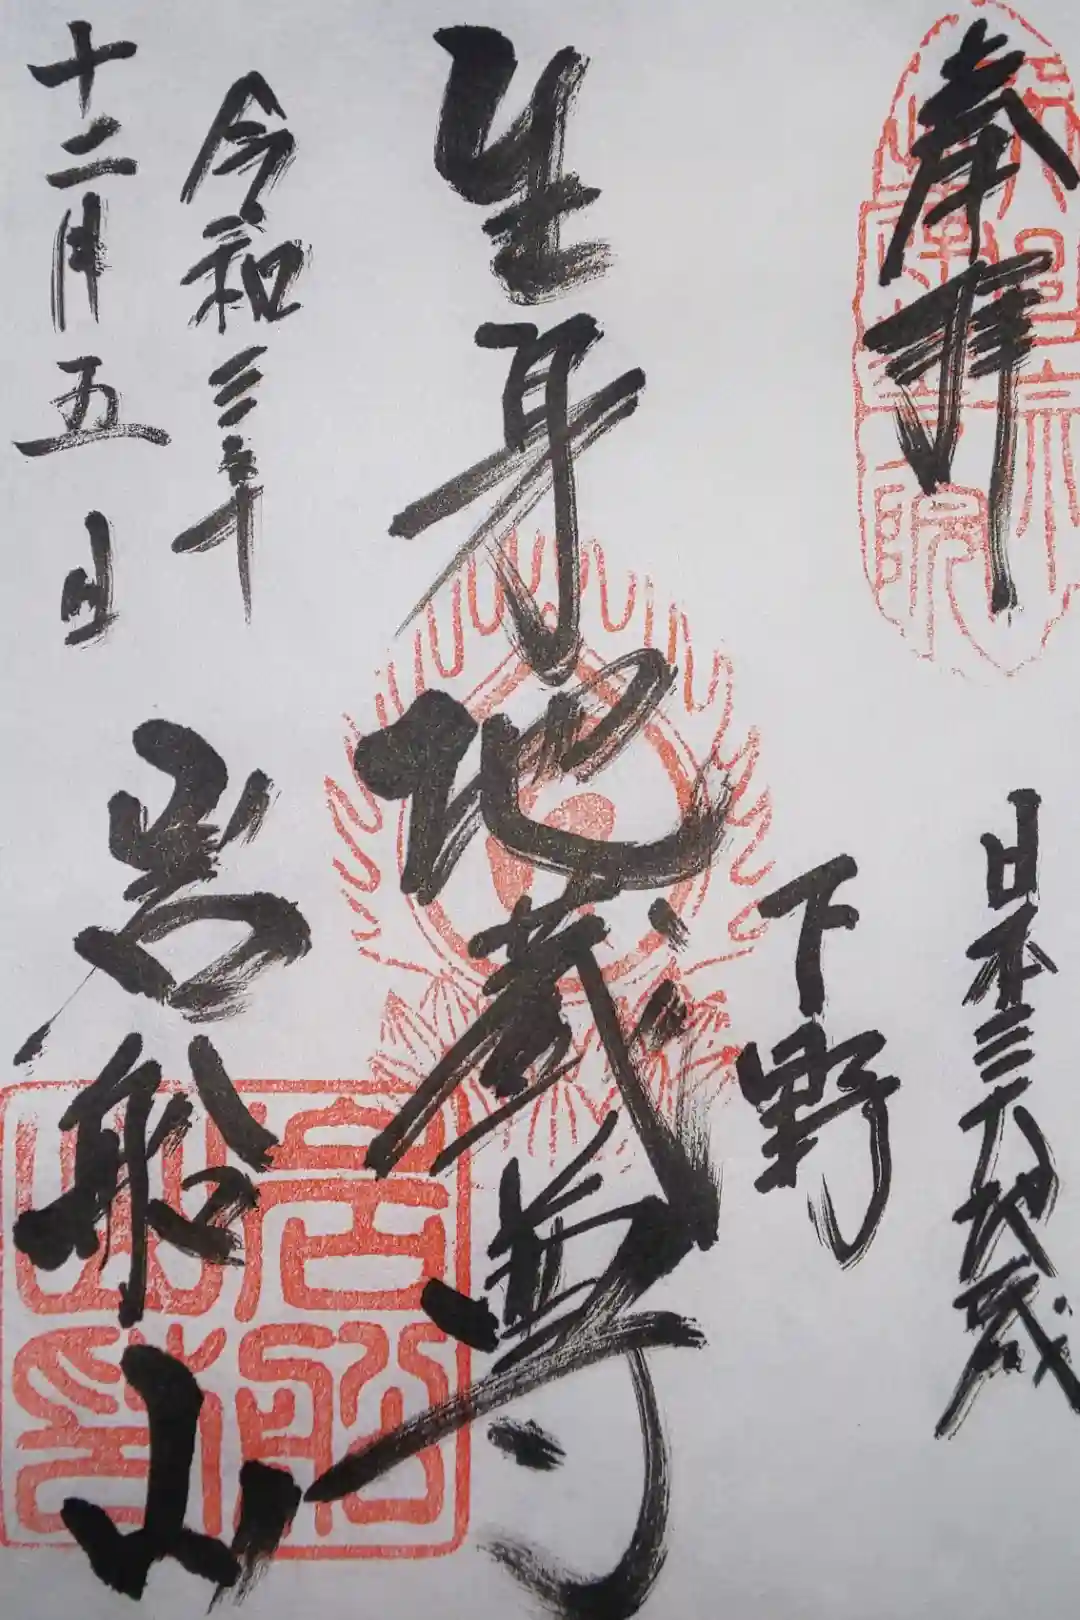 奉拝
日本三大地蔵
下野
生身地蔵尊
令和三年
十二月五日
岩船山